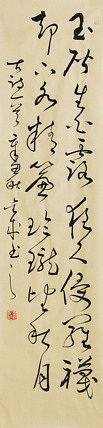 玉階生白露夜久侵羅襪
却下水精簾玲瓏望秋月
古詩一首